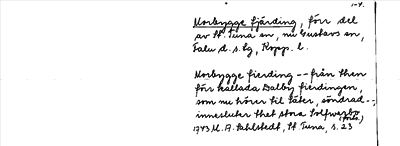 Norbygge fjärding, förr del
av St. Tuna sn, nu Gustavs sn,
Falu d. s. lg, Kopp. l.
Norbygge fierding -- från then
för kallada Dalby fierdingen,
som nu hörer til Säter, söndrad --,
innesluter thet stora Solfwarbo
1743 A. A. Sahlstedt, St. Tuna, s. 23